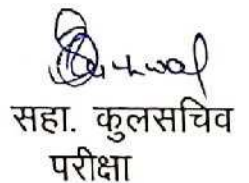 सहा. कुलसचिव
परीक्षा